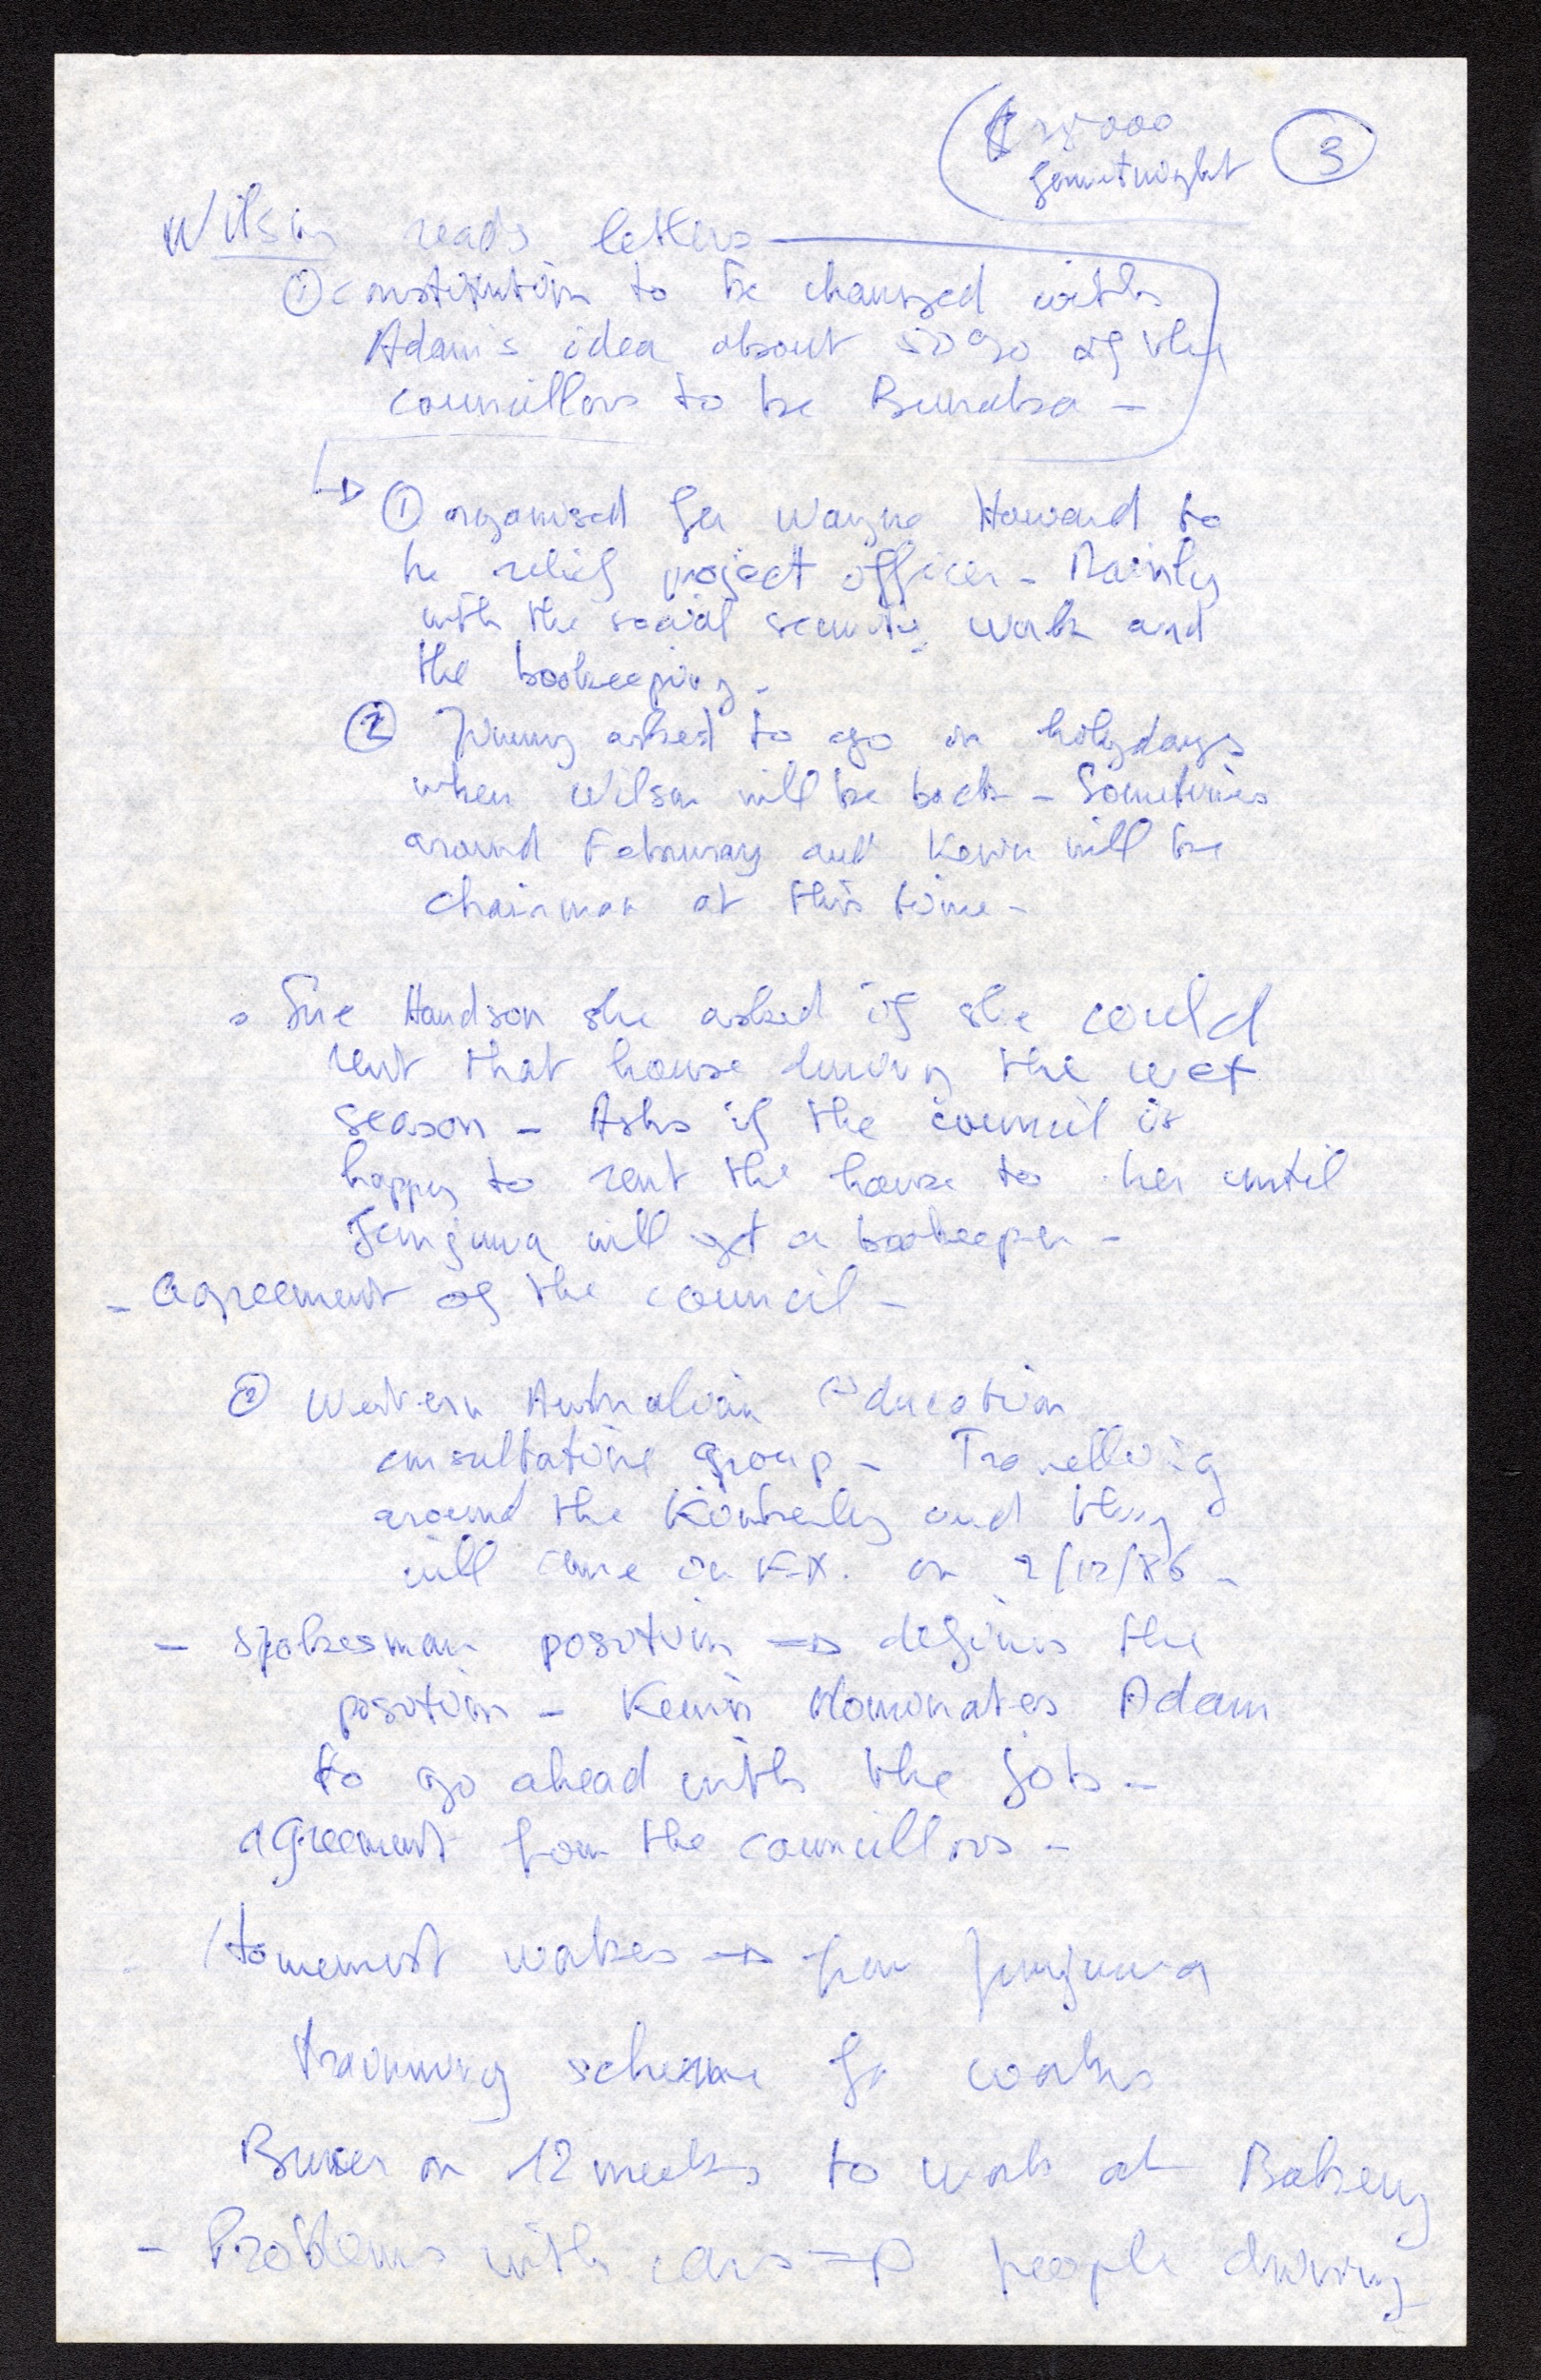 $ 28000
3
Wilson reads letters
① constitution to be changed with
Adam's idea about 50% of the
councillors to be Bunaba -
① organised for Wayne Howard to
be relief project officer - Mainly
with the social security work and
the bookeeping -
② Jimmy asked to go in holydays
when Wilson will be back - Sometimes
around February and Kevin will be
chairman at this time -
Sue Handson she asked if she could
rent that house during the wet
season - Asks if the council is
happy to rent the house to her until
Junjuwa will get a bookeeper -
- agreement of the council -
② Western Australian Education
consultative group - Travelling
around the Kimberley and they
will come in F.X. on 2/12/86 -
- spokesman position => defines the
position - Kevin nominates Adam
to go ahead with the job -
agreement from the councillors -
wakes → from Junjuwa
trainning scheme for works
on 12 weeks to work at Bakery
- Problems with cars => people driving